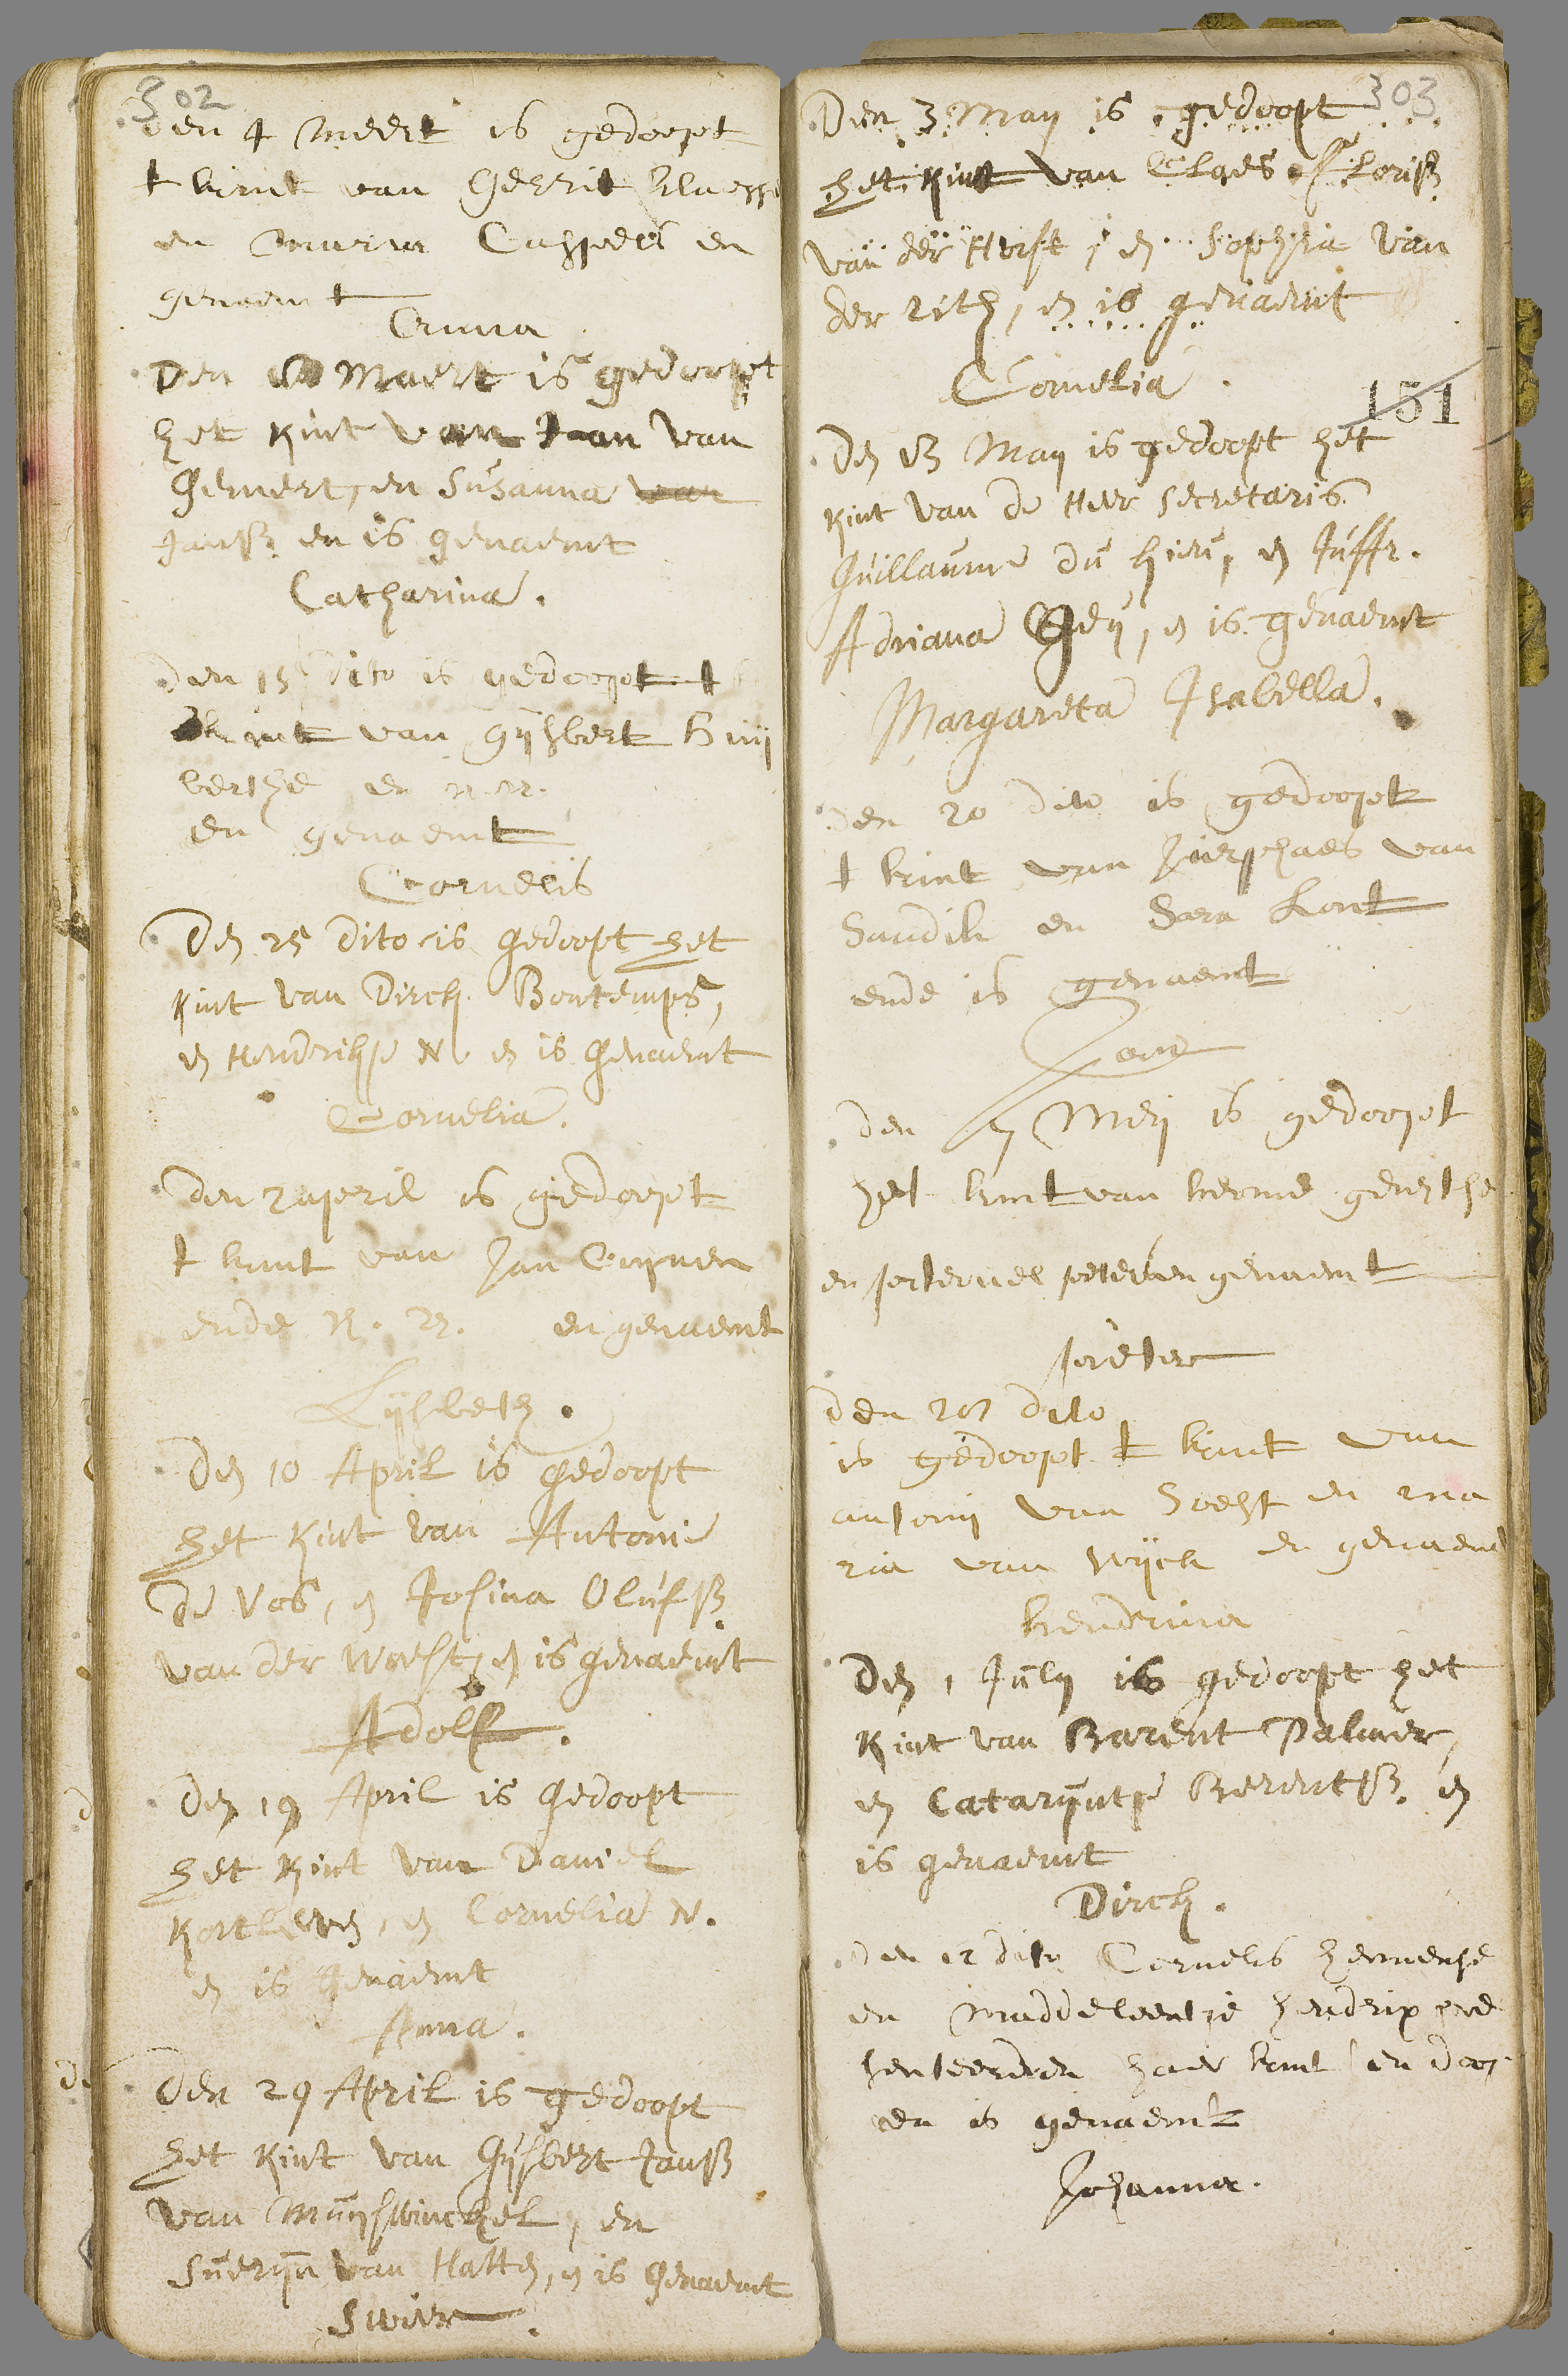 302
den 4 meert is gedoopt
t kint van Gerrit
en maria Caspers en
genaemt
Anna
Den 10 Maert is gedoopt
het kint van Jan van
Gemert, en Susanna van
Janss. en is genaemt
Catharina.
den 15 dito is gedoopt t
kint van gijsbert huij
bertse en n.n.
en genaemt
Cornelis
Den 25 dito is gedoopt het
kint van Dirck Bontemps,
en Hendrikje N en is genaemt
Cornelia.
den 2 april is gedoopt
t kint van Jan Cuynen
ende N. N. en genaemt
Lijsbeth.
Den 10 April is gedoopt
het kint van Antoni
de Vos, en Josina Olufss.
van der Woest, en is genaemt
Adolf.
Den 19 April is gedoopt
het kint van Daniel
Kortleven, en Cornelia N.
en is genaemt
Anna.
Den 29 April is gedoopt
het kint van Gijsbert Janss
van Muijswinckel, en
Sueryn van Hatten, en is genaemt
Swier.
303
Den 3 May is gedoopt
het kint van Claes Floriss
van der Horst, en Sophia van
der rith, en is genaemt
Cornelia.
151
Den 13 May is gedoopt het
kint van de Heer Secretaris
Guillaume du hieu, en Juffr.
Adriana Gey, en is genaemt
Margareta Isabella.
den 20 dito is gedoopt
t kint van Jurphaes van
Sandik en Sara Kont
ende is genaemt
den 7 Meij is gedoopt
het kint van herme gerritse
en peternel peters en genaemt
pieter
den 20 dito
is gedoopt t kint van
antonij van Soest en ma
ria van wijck en genaemt
hendrina
Den 1 July is gedoopt het
kint van Barent Palmer,
en Catarijntje Berentss. en
is genaemt
Dirck.
den 12 dito Cornelis hermense
en maddeleentje hendrix pre
senteerden haer kint en doop
en is genaemt
Johanna.